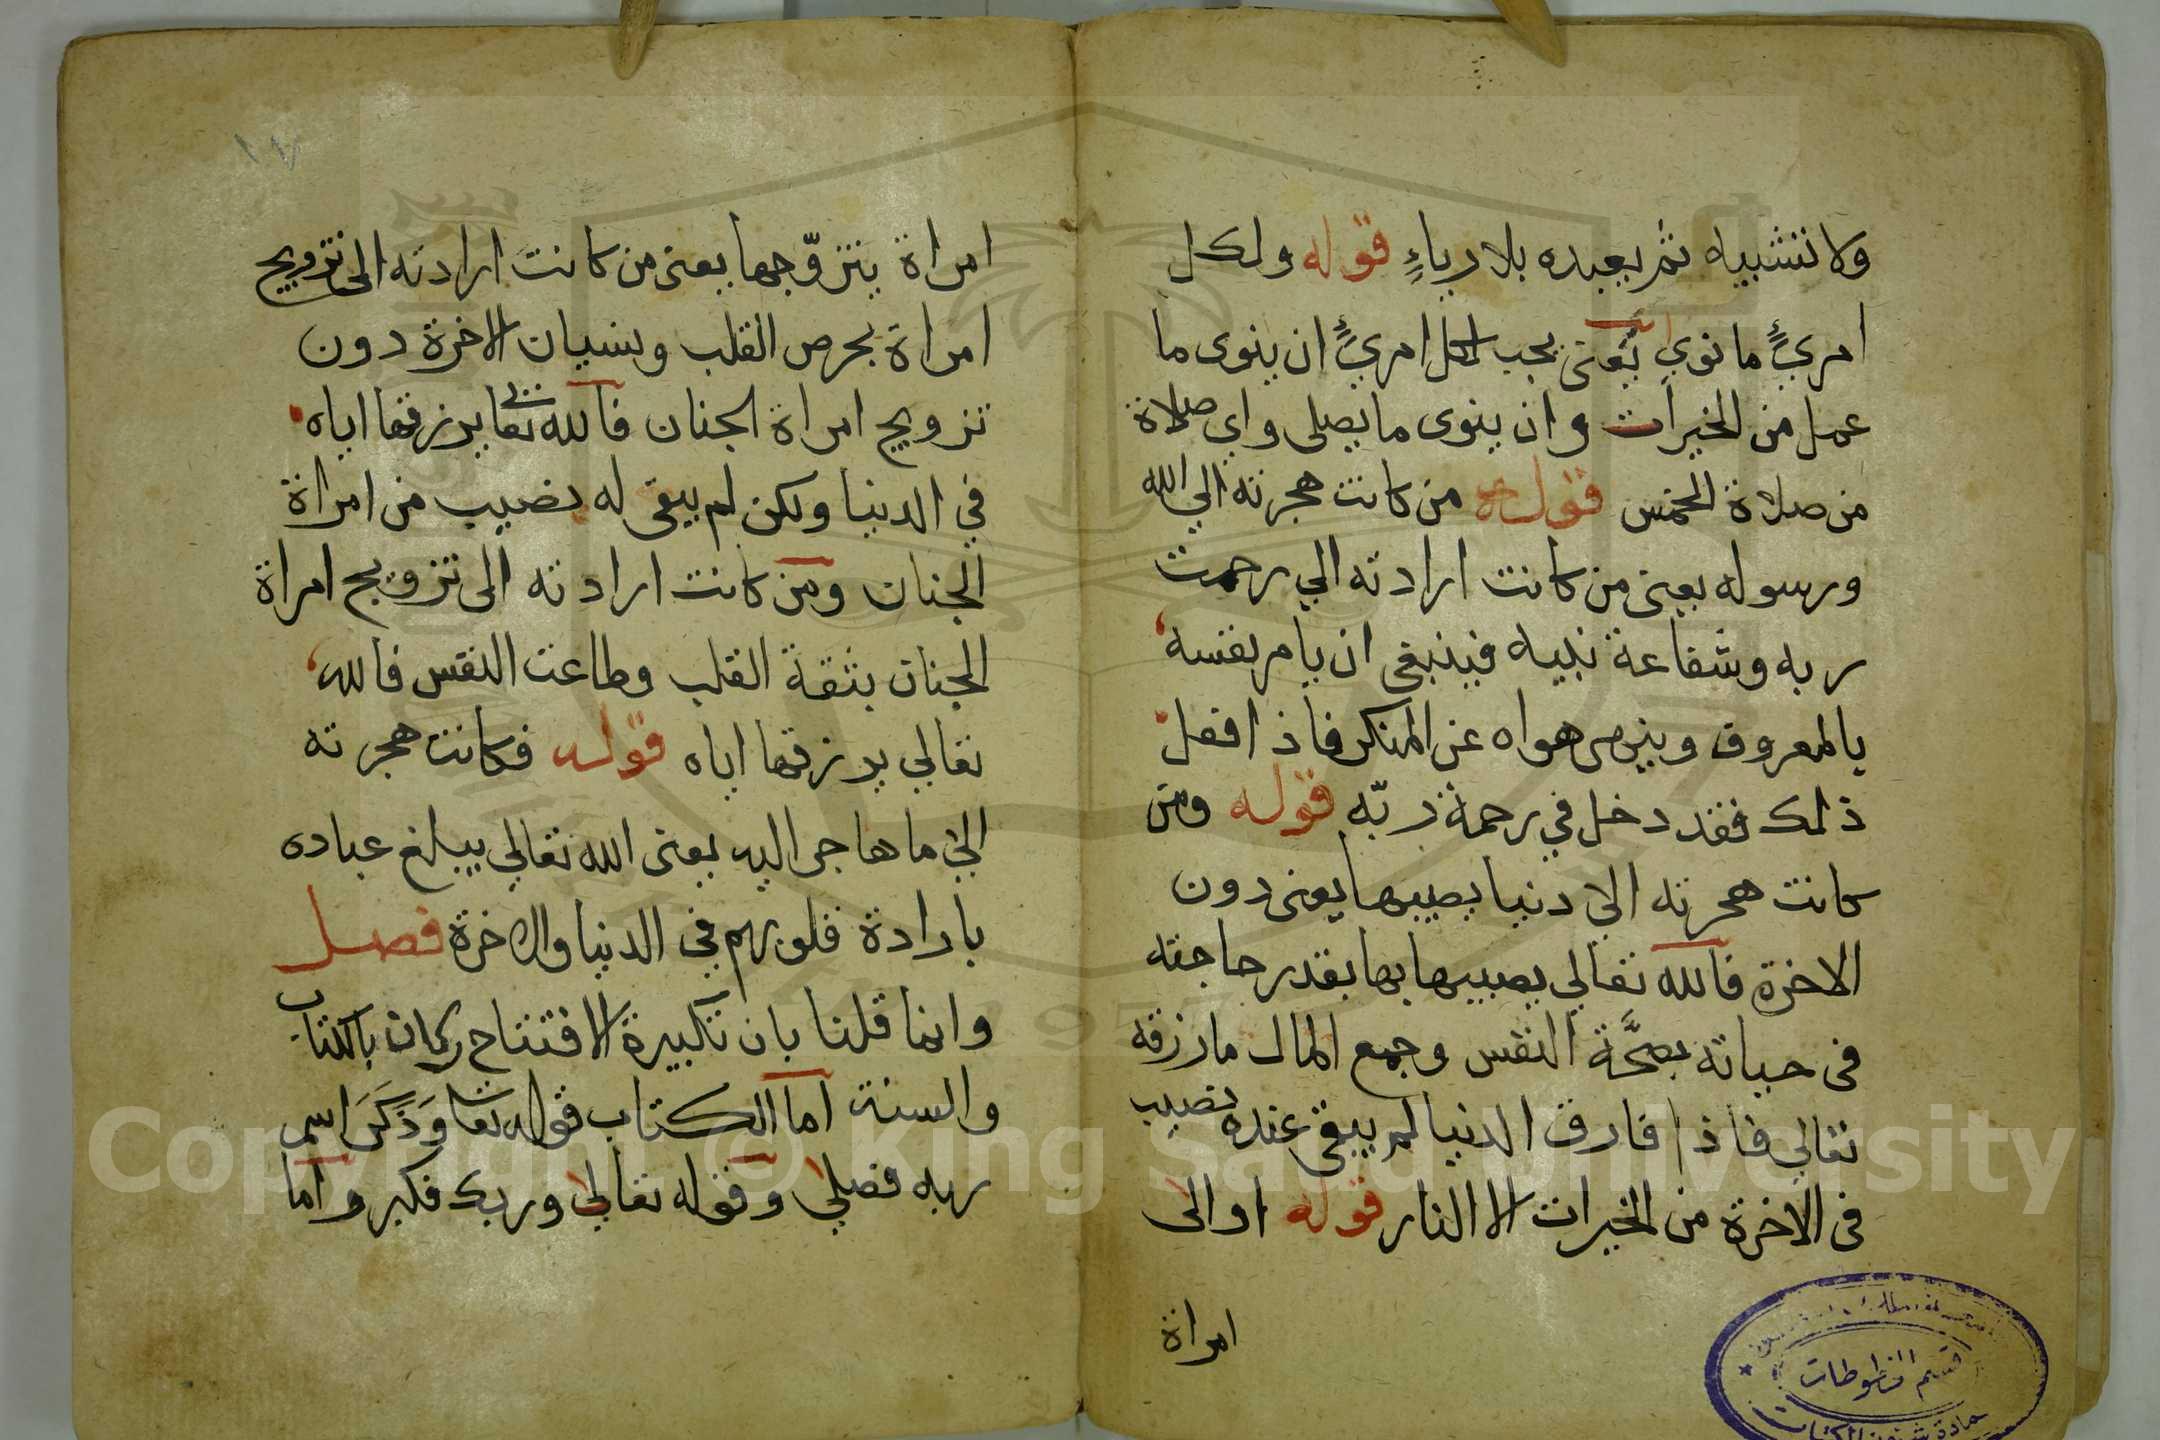 ولا تشبيه ثم يعبده بلا رياءٍ قوله ولكل
امرئٍ ما نوي يعنى يجب لكل امرئٍ ان ينوى ما
عمل من الخيرات وان ينوى ما يصلى واي صلاة
من صلاة الخمس قوله من كانت هجرته الي الله
ورسوله يعنى من كانت ارادته الي رحمت
ربه وشفاعة نبيه فينبغى ان يامر نفسه
بالمعروف وينهى هواه عن المنكر فاذا فعل
ذلك فقد دخل في رحمة ربّه قوله ومن
كانت هجرته الي دنيا يصيبها يعنى دون
الاخرة فالله تعالي يصيبها بها بقدر حاجته
فى حياته بصحَّة النفس وجمع المال ما رزقه
تعالي فاذا فارق الدنيا لم يبقى عنده نصيب
فى الاخرة من الخيرات الا النار قوله او الى
امراة
١٧
امراة يتزوّجها يعنى من كانت ارادته الى تزويج
امراة بحرص القلب ونسيان الاخرة دون
تزويج امراة الجنان فالله تعا يرزقها اياه
في الدنيا ولكن لم يبقى له نصيب من امراة
الجنان ومن كانت ارادته الى تزويج امراة
الجنان بثقة القلب وطاعت النفس فالله
تعالي يرزقها اياه قوله فكانت هجرته
الي ما هاجر اليه يعنى الله تعالي يبلغ عباده
بارادة قلوبهم في الدنيا والاخرة فصل
وانما قلنا بان تكبيرة الافتتاح ركان بالكتاب
والسنة اما الكتاب قوله تعا وَذَكَرَ اسم
ربه فصلي وقوله تعالي وربك فكبر واما
قسم المخطوطات
عمادة شئون المكتبات
Copyright © King Saud University
1957